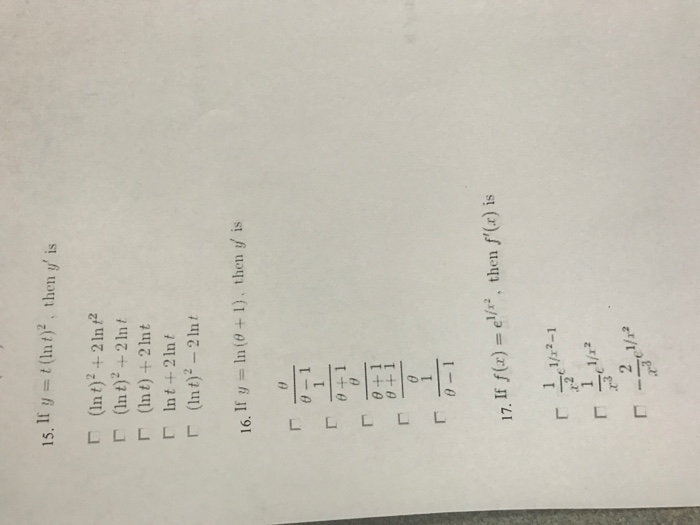 15. If y = t (ln t)², then y′ is
□ (ln t)² + 2 ln t²
□ (ln t)² + 2 ln t
□ (ln t) + 2 ln t
□ ln t + 2 ln t
□ (ln t)² − 2 ln t
16. If y = ln (θ + 1), then y′ is
□ θ/(θ − 1)
□ 1/(θ + 1)
□ θ/(θ + 1)
□ (θ + 1)/θ
□ 1/(θ − 1)
17. If f(x) = e^(1/x²), then f′(x) is
□ 1/x² e^(1/x²−1)
□ 1/x³ e^(1/x²)
□ −2/x³ e^(1/x²)